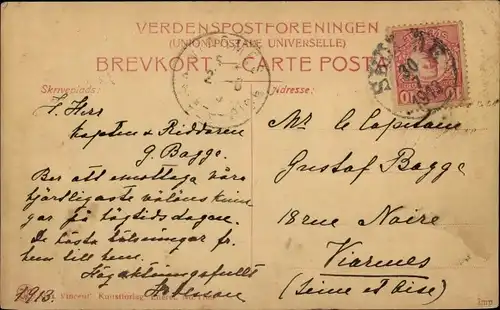 VERDENSPOSTFORENINGEN
(UNION POSTALE UNIVERSELLE)
BREVKORT - CARTE POSTA
Skrivplads:
Adresse:
T. Herr
Kapten & Riddaren
G. Bagge.
Ber att emottaga våra
hjärtligaste välönsknin
gar på högtidsdagen.
De bästa hälsningar fr.
hem till hem.
Högaktningsfullt
1913.
Mr le Capitaine
Gustaf Bagge
18 rue Noire
Viarmes
(Seine et Oise)
Vincent Kunstforlag